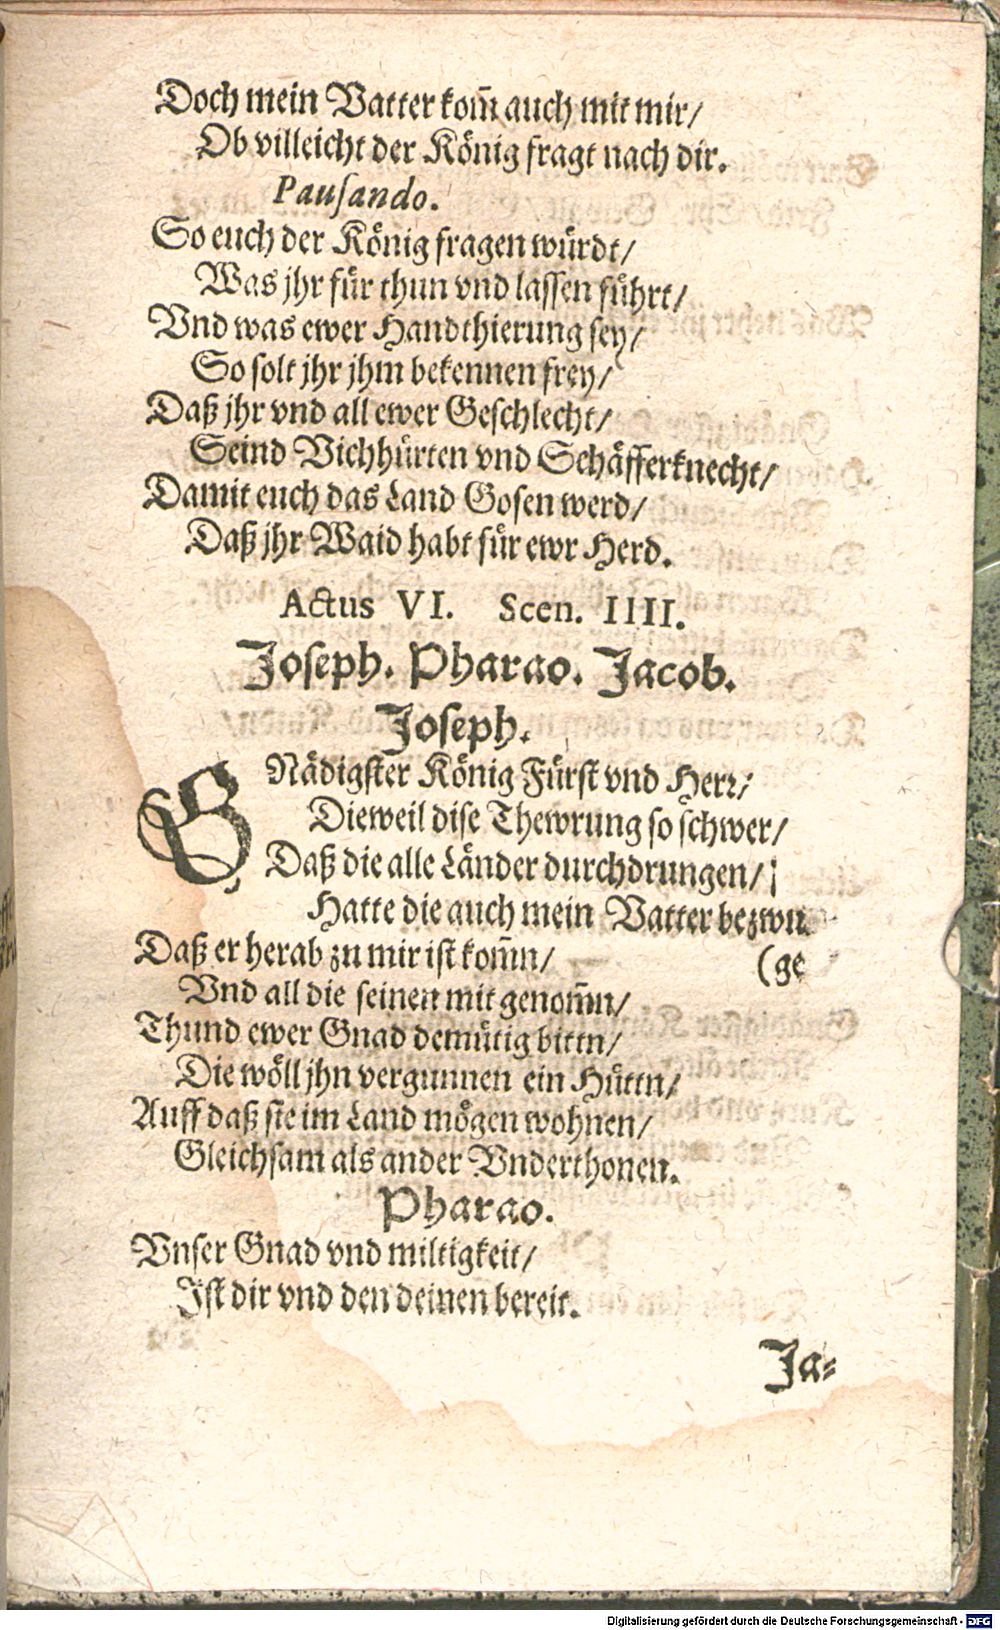 Doch mein Vatter kom̃ auch mit mir/
Ob villeicht der König fragt nach dir.
Pauſando.
So euch der König fragen würdt/
Was jhr für thun vnd laſſen führt/
Vnd was ewer Handthierung ſey/
So ſolt jhr jhm bekennen frey/
Daß jhr vnd all ewer Geſchlecht/
Seind Vichhürten vnd Schäfferknecht/
Damit euch das Land Goſen werd/
Daß jhr Waid habt für ewr Herd.
Actus VI. Scen. IIII.
Joſeph. Pharao. Jacob.
Joſeph.
GNädigſter König Fürſt vnd Herr/
Dieweil diſe Thewrung ſo ſchwer/
Daß die alle Länder durchdrungen/
Hatte die auch mein Vatter bezwu
(ge
Daß er herab zu mir iſt kom̃n/
Vnd all die ſeinen mit genom̃n/
Thund ewer Gnad demütig bittn/
Die wöll jhn vergunnen ein Hüttn/
Auff daß ſie im Land mögen wohnen/
Gleichſam als ander Vnderthonen.
Pharao.
Vnſer Gnad vnd miltigkeit/
Iſt dir vnd den deinen bereit.
Ja-
Digitalisierung gefördert durch die Deutsche Forschungsgemeinschaft - DFG